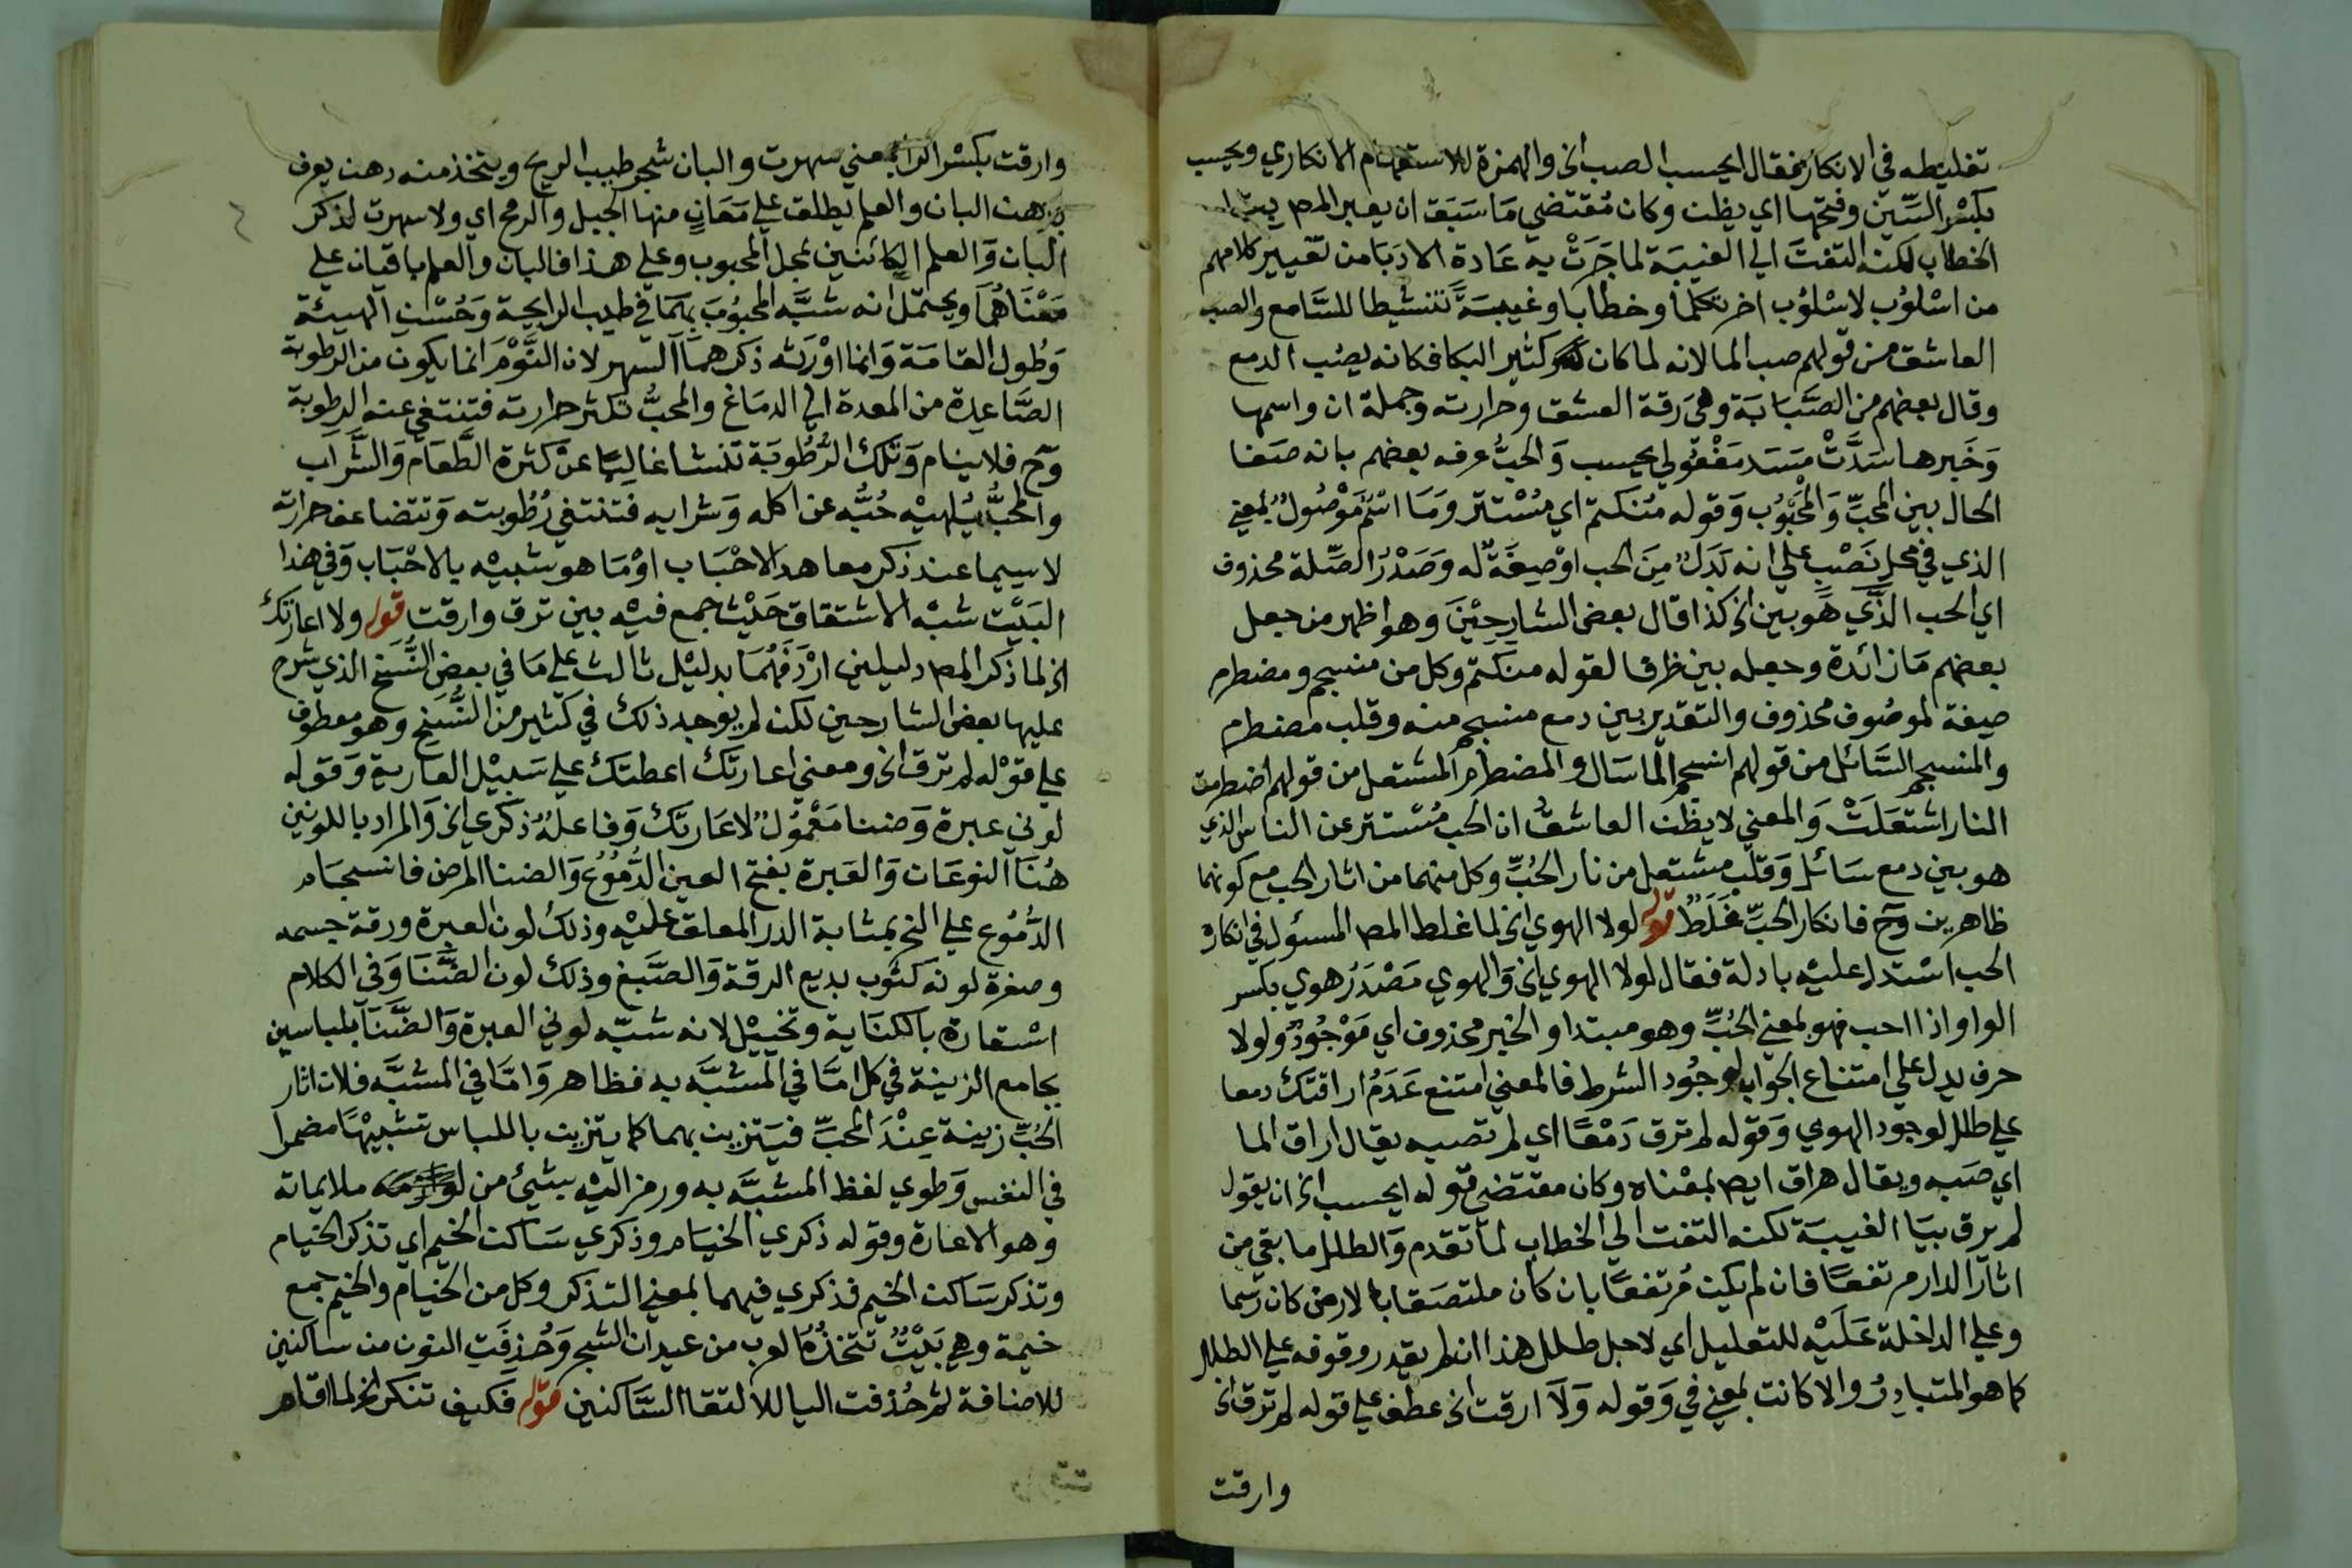 تغليطه في الانكار فقال ايحسب الصب الخ والهمزة للاستفهام الانكاري ويحسب
بكسْر السِّين وفتحها اي يظن وكان مُقتضي مَا سَبَقَ ان يعبر المص بتا
الخطاب لكنه التفتَ الي الغيبَة لما جَرَتْ به عَادة الادبَا من تغيير كلامهم
من اسْلوُب لاسْلوُب اخر تكلما وخطابا وغيبَةً تنشيطا للسَّامع والصب
العاشق من قولهم صب الما لانه لما كان كثير البكا فكانه يصُب الدمع
وقال بعضهم من الصَّبَابَة وهي رَقة العشق وحرارته وجملة ان واسمها
وَخَبرها سَدَّتْ مَسَد مَفْعُولي يحسب وَالحبُّ عرفه بعضهم بانه صَفا
الحال بين المحبِّ وَالمْحبُوُب وَقوله مُنكتم اي مُسْتتر وَمَا اسْمٌ مَوْصُولٌ بمعني
الذي في محل نَصْبٍ علي انه بَدَلٌ مِنَ الحب اوْ صِفَةٌ له وَصَدْرُ الصِّلة محذوف
اي الحب الذَّي هُوَ بين الخ كذا قال بعض الشارحِيْنَ وهو اظهر من جعل
بعضهم مَا زائدة وجعله بين ظرفا لقوله منكتم وكل من منسجم ومضطرم
صفة لموصُوف محذوف والتقدير بين دمع منسجم منه وقلب مضطرم
والمنسجم السَّائل من قولهم انسجم الما سَال والمضطرم المشتعل من قولهم اضطرمت
النار اشتعَلَتْ وَالمعني لا يظن العاشقُ ان الحب مُسْتتر عن الناس الذي
هو بين دمع سَائل وَقلب مشتعل من نار الحُبِّ وكل منهما من اثار الحب مع كونهما
ظاهرين وح فانكار الحبِّ غَلَطٌ قوله لولا الهوي الخ لما غلط المص المسئول في انكار
الحب اسْتدل عليْه بادلة فقال لولا الهوي الخ وَالهوي مَصْدَرُ هوي بكسر
الواو اذا احب فهو بمعني الحُبِّ وهو مبتدا والخبر محذوف اي مَوْجُودٌ ولولا
حرف يدل علي امتناع الجواب لوجُود الشرط فالمعني امتنع عَدَمُ اراقتك دمعا
علي طلل لوجود الهوي وَقوله لم ترق دَمْعًا اي لم تصبه يقال اراق الما
اي صَبه ويقال هراق ايص بمعْناه وكان مقتضي قوله ايحسب الخ ان يقول
لم يرق بيَا الغيبَة لكنه التفت الي الخطاب لما تقدم وَالطلل ما بقي من
اثار الدار مرتفعًا فان لم يكن مُرتفعًا بان كان ملتصَقا بالارض كان رَسْما
وعلي الداخلة عَلَيْه للتعليل اي لاجل طلل هذا ان لم يقدر وقوفه علي الطلل
كما هو المتبادرُ والا كانت بمعني في وَقوله وَلَا ارقت الخ عطف علي قوله لم ترق الخ
وارقت
وارقت بكسْر الرا بمعني سهرت والبان شجر طيب الريح ويتخذ منه دهن يعرف
بدهن البان والعلم يطلق علي مَعَانٍ منها الجبل والرمح اي ولا سهرت لذكر
البان وَالعلم الكائنين بمحل المحبوب وعلي هذا فالبان والعلم باقيان علي
مَعْنَاهُمَا ويحتمل انه شبَّه المحبُوبَ بهمَا في طيب الرايحة وَحُسْن الهيئة
وَطُول القامَة وَانما اوْرَثه ذكرهمَا السهر لان النَّوْمَ انما يكون من الرطوبة
الصَّاعدة من المعدة الي الدمَاغ والمحبُّ تكثر حرارته فتنتفي عنه الرطوبة
وح فلا ينام وَتلك الرُّطُوبَة تنشا غالِبًا عَن كثرة الطَّعَام وَالشَّرَاب
والمحبُّ يُلهيْه حُبُّه عن اكله وَشرابه فتنتفي رُطُوبته وَتتضاعف حرارته
لاسيما عند ذكر معاهد الاحْبَاب اوْ مَا هو شبيْه بالاحْبَاب وَفي هذا
البَيْت شبْه الاشتقاق حَيْث جمع فيْه بين ترق وارقت قوله ولا اعارتك
الخ لما ذكر المص دليلين ارْدَفَهُمَا بدليْل ثالث علي مَا في بعض النُّسَخ الذي شرح
عليها بعض الشارحين لكن لم يوجد ذلك في كثير من النُّسَخ وهو معطوف
علي قوْله لم ترق الخ ومعني اعارتك اعطتك علي سَبيْل العارية وَقوله
لوني عبرة وَضنا مَعْمُولٌ لاعَارتك وَفاعلهُ ذكري الخ وَالمراد باللونين
هُنَا النوعَان وَالعَبرة بفتح العين الدُّمُوُع وَالضنا المرض فانسجَام
الدُّمُوع علي النحر بمثابة الدر المعلق عليْه وذلك لون العبرة ورقة جسمه
وصفرة لونه كثوب بديع الرقة وَالصَّبغ وذلك لون الضَّنَا وَفي الكلام
اسْتعارة بالكنَاية وتخييْل لانه شبّه لوني العبرة وَالضَّنَا بلباسين
بجامع الزينة في كل امَّا في المشبَّه به فظاهر وَامَّا في المشبَّه فلان اثار
الحُبِّ زينة عِنْدَ المحبِّ فيَتزين بهما كما يتزين باللباس تشبيهًا مضمرا
في النفس وَطوي لفظ المشبَّه به ورمز اليْه بشيْئ من ملايماته
وهو الاعارة وقوله ذكري الخيَام وذكري سَاكن الخيم اي تذكر الخيام
وتذكر سَاكن الخيم فذكري فيهما بمعني التذكر وكل من الخيام والخيم جمع
خيمة وهي بَيْتٌ تتخذهُ العرب من عيدان الشجر وَحُذفَتِ النون من ساكنين
للاضافة ثم حُذفت اليا لالتقا السَّاكنين قوله فكيف تنكر الخ لما اقام